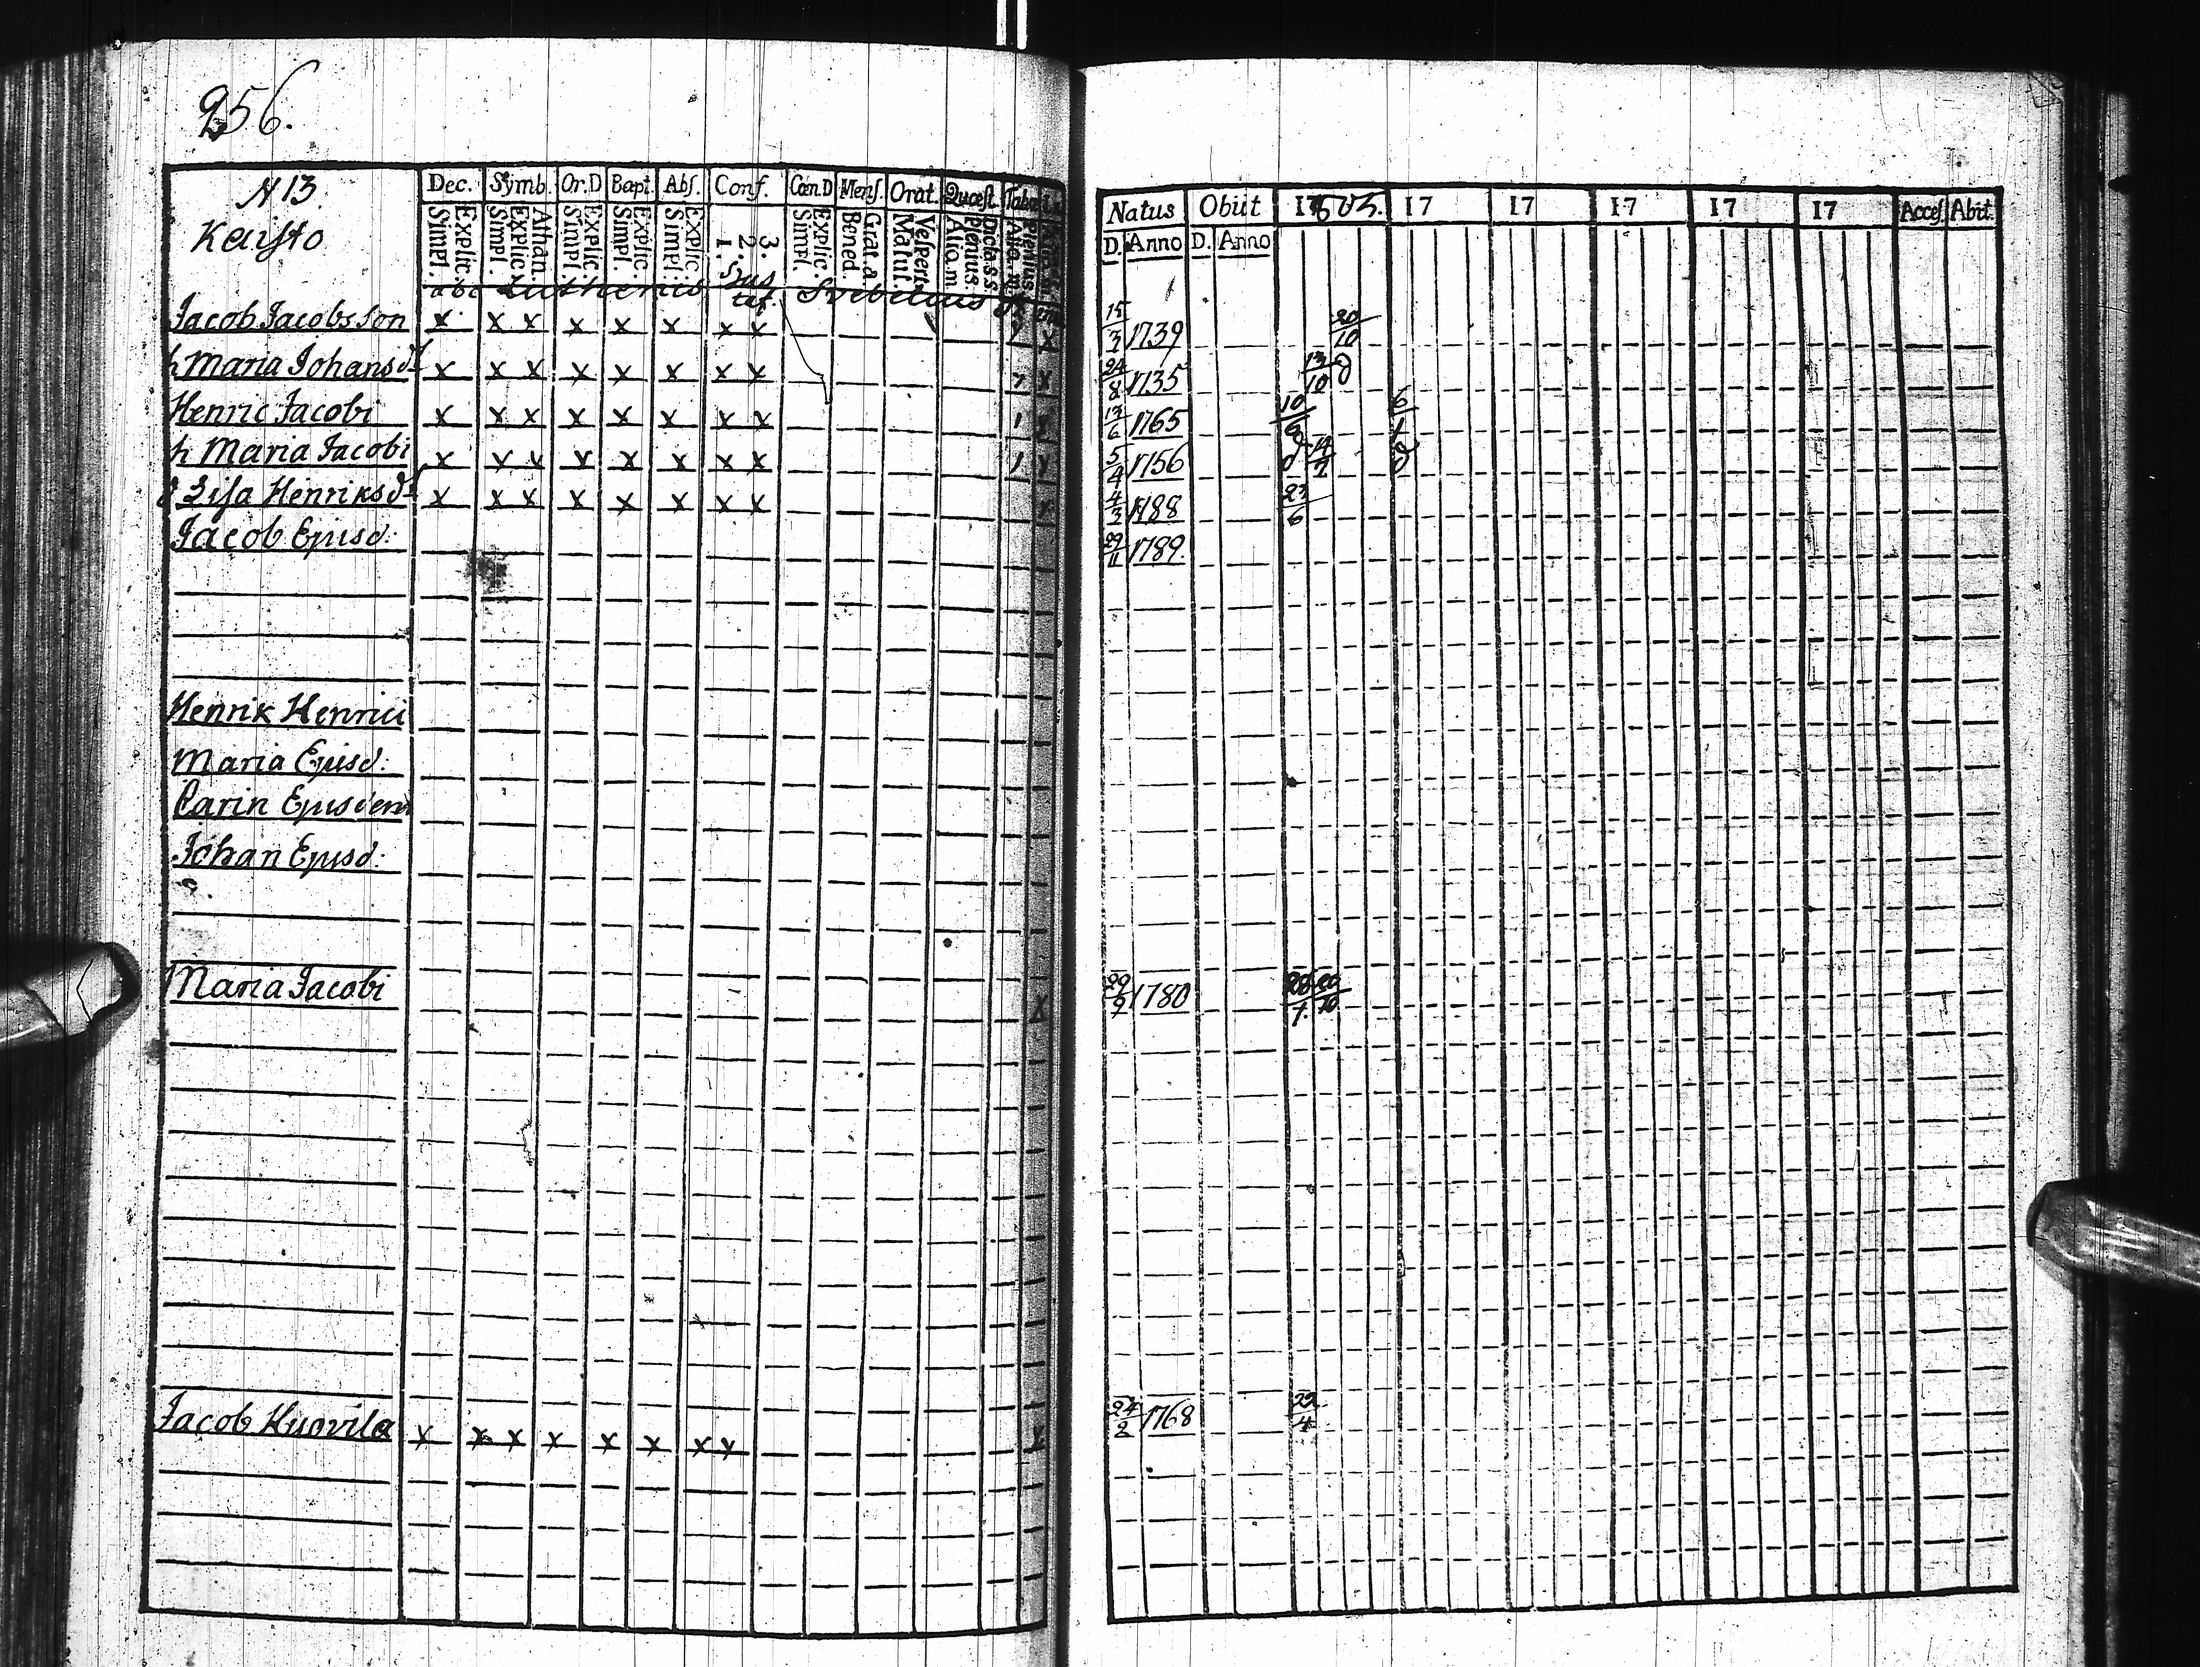 256.
N 13.
Kaisto
Dec. Symb. Or.D Bapt. Abs. Conf. Cœn.D Mens. Orat. Quæst. Tabu
Explic. Simpl. Athan. Explic. Simpl. Explic. Simpl. Explic. Simpl. Explic. Simpl. 3. 2. 1. Explic. Simpl. Grat.a Bened. Vespert. Matut. Dicta s.s. Plenius. Aliq.m. Plenius. Aliq.m.
abc Lutheries Svebelius
Jacob Jacobsson x x x x x x x x x
h Maria Johansdr x x x x x x x x x
Henric Jacobi x x x x x x x x 1
h Maria Jacobi x x x x x x x x 1
d Lisa Henriksdr x x x x x x x x x
Jacob Ejusd:
Henrik Henrici
Maria Ejusd:
Carin Ejusdem
Johan Ejusd:
Maria Jacobi x
Jacob Kuovila x x x x x x x x x
Natus Obiit 1803. 17 17 17 17 17 Acces. Abit.
D. Anno D. Anno
15/3 1739 20/10
24/8 1735 13/10
13/6 1765 10/6 6/1
5/4 1756 14/7
4/3 1788 23/6
29/11 1789.
29/9 1780 28/1 20/10
24/2 1768 22/4